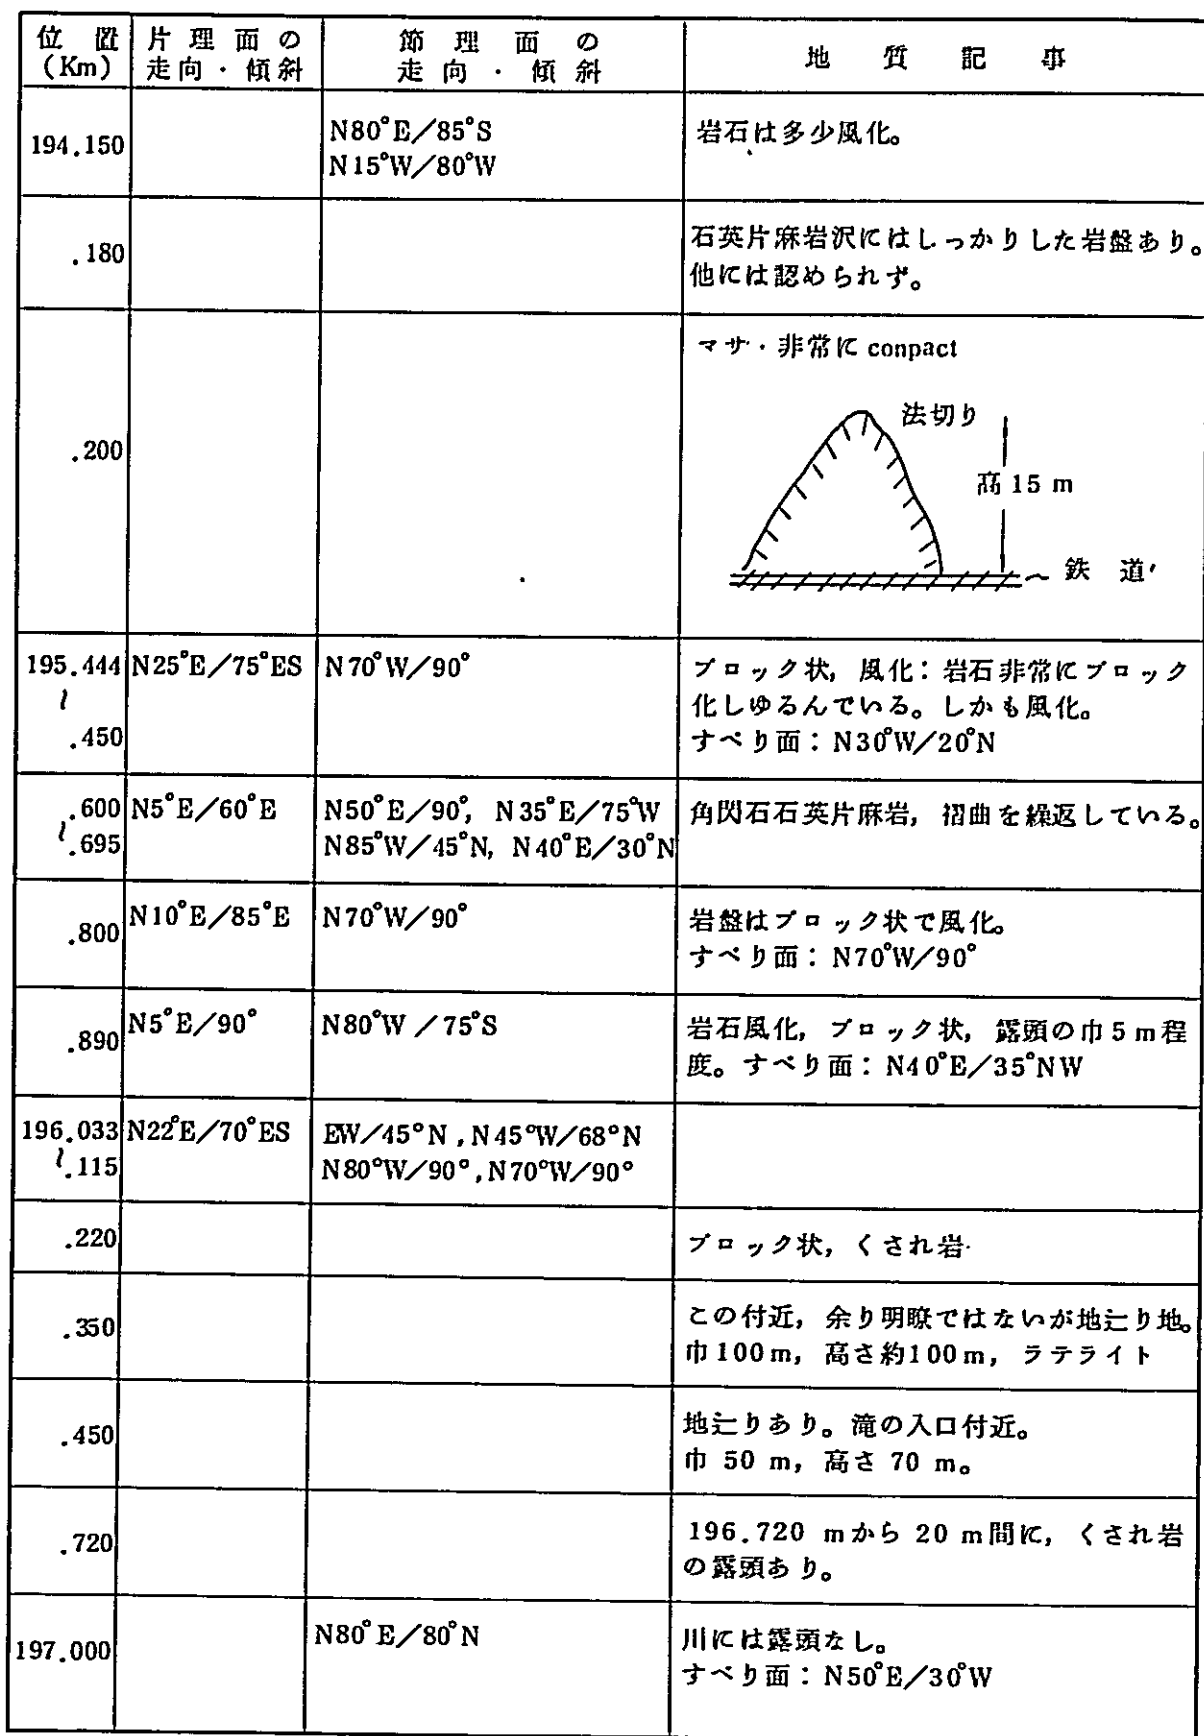 位 置 片 理 面 の 節 理 面 の 地 質 記 事
(Km) 走向・傾斜 走 向 ・ 傾 斜
194.150
N80°E/85°S
N15°W/80°W
岩石は多少風化。
.180
石英片麻岩沢にはしっかりした岩盤あり。
他には認められず。
.200
マサ・非常に conpact
法切り
高 15 m
鉄 道
195.444
~
.450
N25°E/75°ES
N70°W/90°
ブロック状, 風化: 岩石非常にブロック
化しゆるんでいる。しかも風化。
すべり面: N30°W/20°N
.600
~.695
N5°E/60°E
N50°E/90°, N35°E/75°W
N85°W/45°N, N40°E/30°N
角閃石石英片麻岩, 褶曲を繰返している。
.800
N10°E/85°E
N70°W/90°
岩盤はブロック状で風化。
すべり面: N70°W/90°
.890
N5°E/90°
N80°W/75°S
岩石風化, ブロック状, 露頭の巾5m程
度。すべり面: N40°E/35°NW
196.033
~.115
N22°E/70°ES
EW/45°N, N45°W/68°N
N80°W/90°, N70°W/90°
.220
ブロック状, くされ岩
.350
この付近, 余り明瞭ではないが地辷り地。
巾100m, 高さ約100m, ラテライト
.450
地辷りあり。滝の入口付近。
巾 50 m, 高さ 70 m。
.720
196.720 mから 20 m間に, くされ岩
の露頭あり。
197.000
N80°E/80°N
川には露頭なし。
すべり面: N50°E/30°W